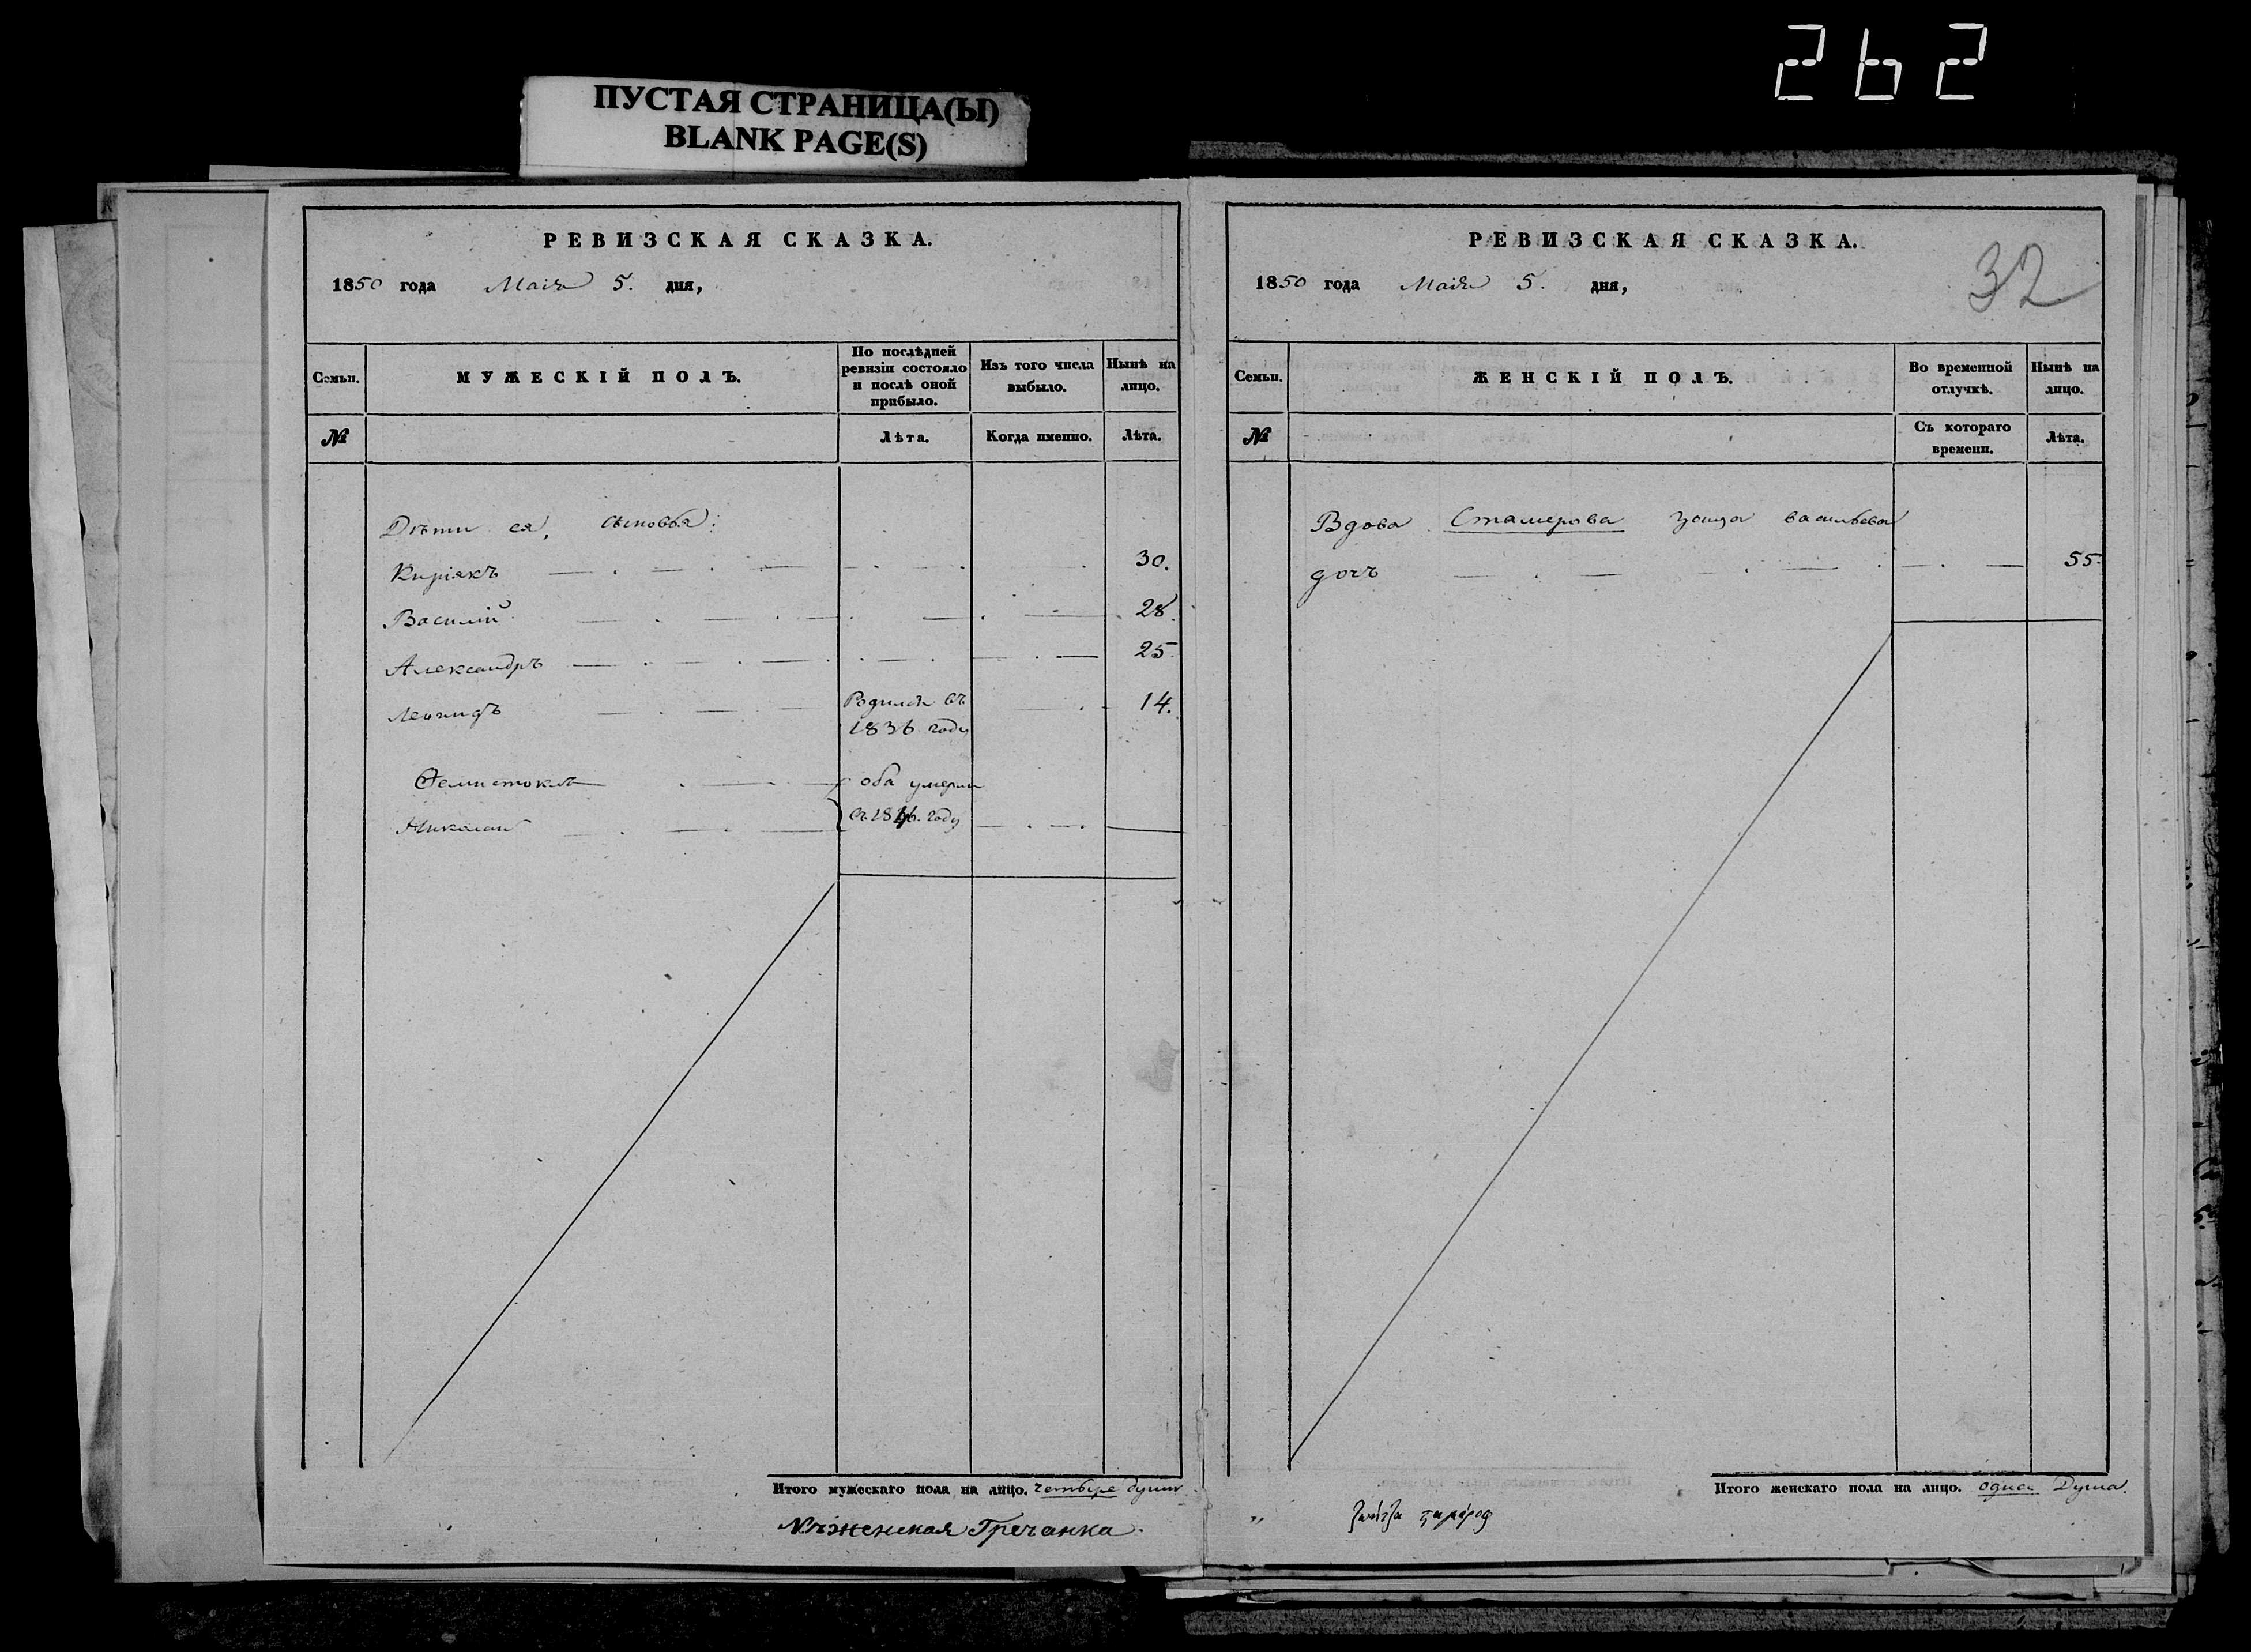 262
ПУСТАЯ СТРАНИЦА(Ы)
BLANK PAGE(S)
РЕВИЗСКАЯ СКАЗКА.
1850 года Маія 5. дня,
Семьи.
МУЖЕСКІЙ ПОЛЪ.
По послѣдней ревизіи состояло и послѣ оной прибыло.
Изъ того числа выбыло.
Нынѣ на лицо.
№
Лѣта.
Когда именно.
Лѣта.
Дѣти ея, сыновья:
Киріякъ 30.
Василій 28.
Александръ 25
Леонидъ Родился въ 14.
1836 году
Ѳемистоклъ оба умерли
Николай въ 1846. году
Итого мужескаго пола на лицо. четыре души
Нѣженская Гречанка.
РЕВИЗСКАЯ СКАЗКА.
32
1850 года Маія 5. дня,
Семьи.
ЖЕНСКІЙ ПОЛЪ.
Во временной отлучкѣ.
Нынѣ на лицо.
№
Съ котораго времени.
Лѣта.
Вдова Стамерова Зоица васильева
дочъ 55.
Итого женскаго пола на лицо. одна Душа.